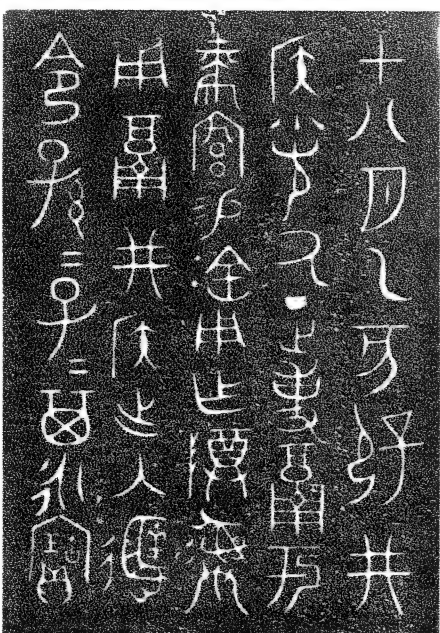 才八月乙亥辟井
侯光氒正吏鬲于
麥宮易金用乍尊彝
用鬲井侯出入
令孫=子=其永寶